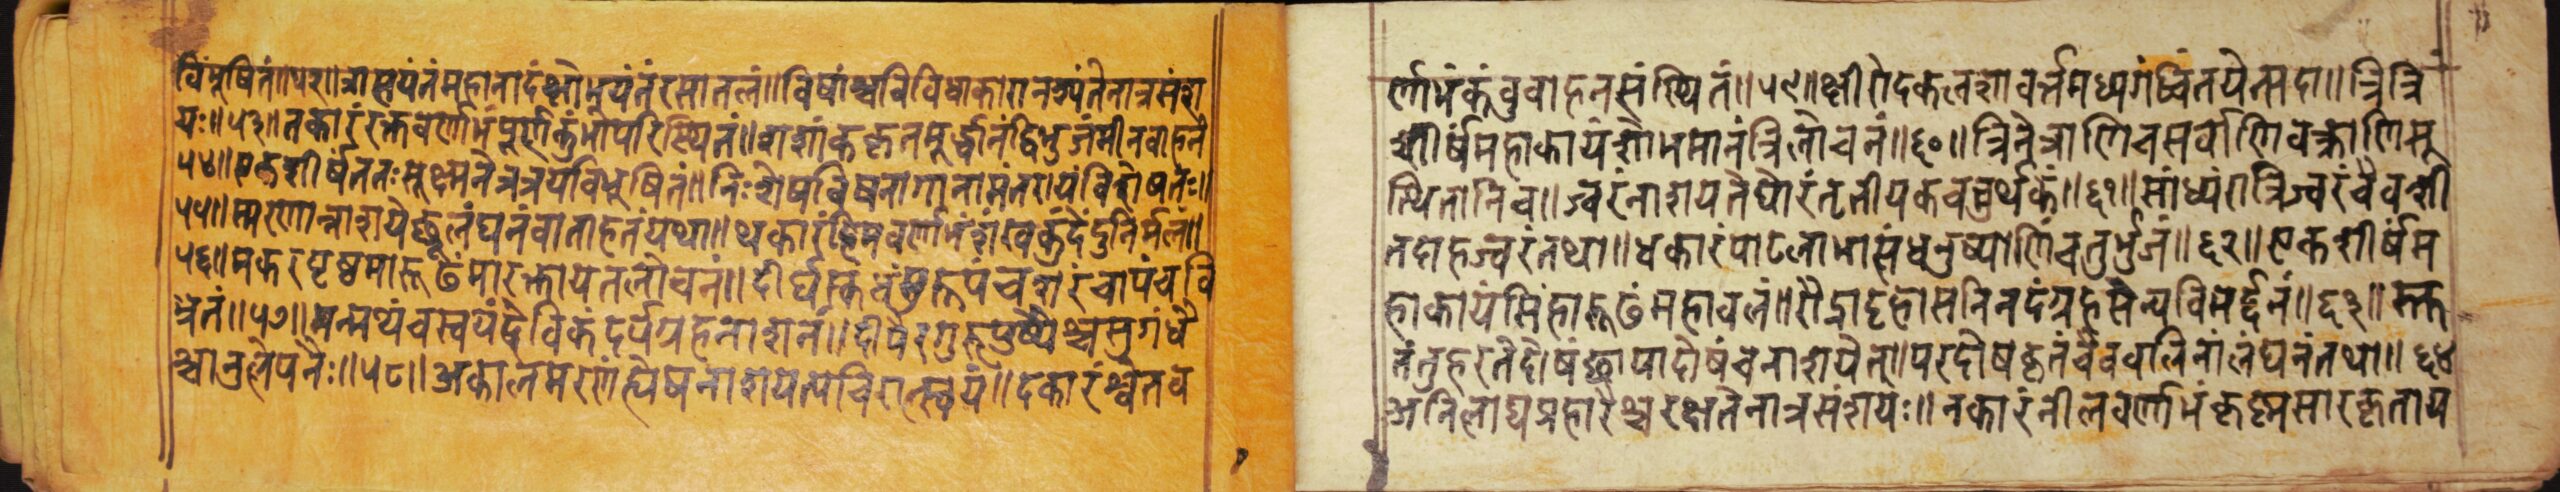 विंभूषितं॥५२॥त्रास्त्रयंतंमहानादंक्षोभयंतंरसातलं॥विषांश्चविविधाकारानज्यंतेनात्रसंश
यः॥५३॥तकारंरक्तवर्णाभंपूर्णकुंभोपरिस्थितं॥शशांककृतमूर्द्धानंद्विभुजंमीनवाहनं
५४॥एकशीर्षंततःसूक्ष्मनेत्रत्रयविभूषितं॥निःशेषविषनागानामंतरायंविशेषतः॥
५५॥स्मरणान्नाशयेछूलंघनंवाताहतंयथा॥थकारंहिमवर्णाभंशंखकुंदेंदुनिर्मलं॥
५६॥मकरपृष्ठमारूढंमारक्तायतलोचनं॥दीर्घस्कंधंसुरूपंचशरंचापंचवि
भ्रतं॥५७॥मन्मथंचस्वयंदेविकंदर्पग्रहनाशनं॥दीपैरगुरुपुष्पैश्चसुगंधै
श्चानुलेपनैः॥५८॥अकालमरणंह्येषनाशयेत्यचिरात्स्वयं॥दकारंश्वेतव
र्णाभंकंवुवाहनसंस्थितं॥५९॥क्षीरोदकलशावर्त्तमध्यगंचिंतयेत्सदा॥त्रित्रि
शीर्षंमहाकायंशोभमानंत्रिलोचनं॥६०॥त्रिनेत्राणिचसर्वाणिवक्त्राणिसु
स्थितानिच॥ज्वरंनाशयतेघोरंतृतीयकचतुर्थकं॥६१॥सांध्यंरात्रिज्वरंचैवशी
तदाहज्वरंतथा॥धकारंपाटलाभासंधनुष्पाणिंचतुर्भुजं॥६२॥एकशीर्षंम
हाकायंसिंहारूढंमहावलं॥रौद्राट्टहासनिनदंग्रहसैन्यविमर्द्दनं॥६३॥स्कं
तंतुहरतेदोषंछायादोषंचनाशयेत्॥परदोषकृतंचैववालिनांलंघनंतथा॥६४
अनिलाद्यप्रहारैश्चरक्षतेनात्रसंशयः॥नकारंनीलवर्णाभंकृष्णसारकृताय